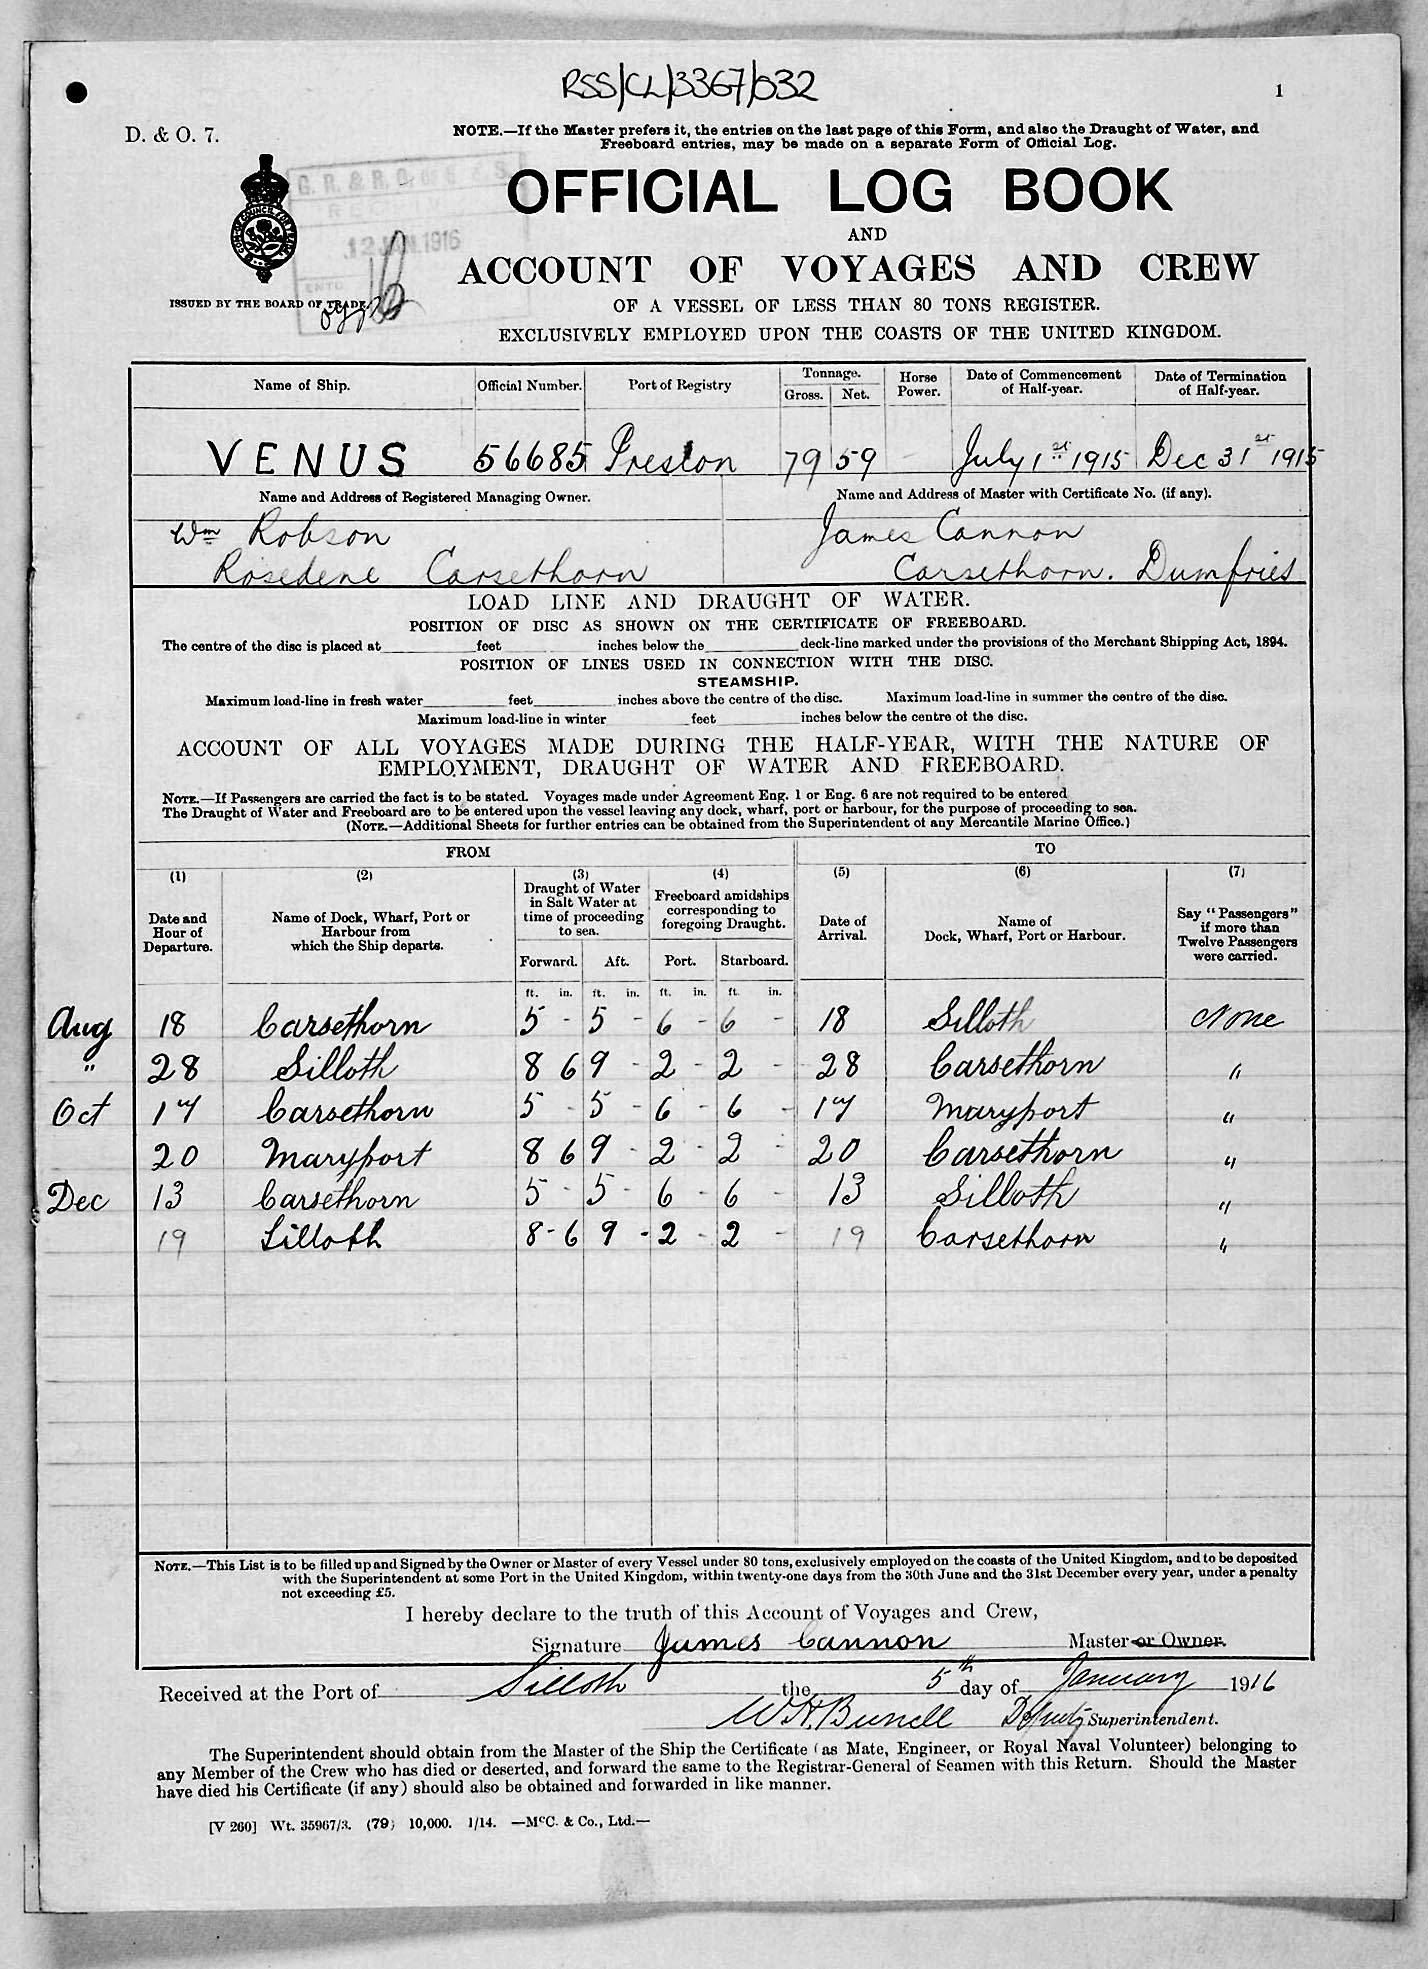 RSS/CL/3367/532
1
D. & O. 7.
NOTE.—If the Master prefers it, the entries on the last page of this Form, and also the Draught of Water, and
Freeboard entries, may be made on a separate Form of Official Log.
G. R. & R. O. of S. & S.
12 JAN. 1916
OFFICIAL LOG BOOK
AND
ACCOUNT OF VOYAGES AND CREW
ISSUED BY THE BOARD OF TRADE.
OF A VESSEL OF LESS THAN 80 TONS REGISTER.
EXCLUSIVELY EMPLOYED UPON THE COASTS OF THE UNITED KINGDOM.
Name of Ship. Official Number. Port of Registry Tonnage. Gross. Net. Horse Power. Date of Commencement of Half-year. Date of Termination of Half-year.
VENUS 56685 Preston 79 59 - July 1st 1915 Dec 31st 1915
Name and Address of Registered Managing Owner. Name and Address of Master with Certificate No. (if any).
Wm Robson James Cannon
Rosedene Carsethorn Carsethorn. Dumfries
LOAD LINE AND DRAUGHT OF WATER.
POSITION OF DISC AS SHOWN ON THE CERTIFICATE OF FREEBOARD.
The centre of the disc is placed at feet inches below the deck-line marked under the provisions of the Merchant Shipping Act, 1894.
POSITION OF LINES USED IN CONNECTION WITH THE DISC.
STEAMSHIP.
Maximum load-line in fresh water feet inches above the centre of the disc. Maximum load-line in summer the centre of the disc.
Maximum load-line in winter feet inches below the centre of the disc.
ACCOUNT OF ALL VOYAGES MADE DURING THE HALF-YEAR, WITH THE NATURE OF
EMPLOYMENT, DRAUGHT OF WATER AND FREEBOARD.
NOTE.—If Passengers are carried the fact is to be stated. Voyages made under Agreement Eng. 1 or Eng. 6 are not required to be entered
The Draught of Water and Freeboard are to be entered upon the vessel leaving any dock, wharf, port or harbour, for the purpose of proceeding to sea.
(NOTE.—Additional Sheets for further entries can be obtained from the Superintendent of any Mercantile Marine Office.)
FROM TO
(1) (2) (3) (4) (5) (6) (7)
Date and Hour of Departure. Name of Dock, Wharf, Port or Harbour from which the Ship departs. Draught of Water in Salt Water at time of proceeding to sea. Freeboard amidships corresponding to foregoing Draught. Date of Arrival. Name of Dock, Wharf, Port or Harbour. Say "Passengers" if more than Twelve Passengers were carried.
Forward. Aft. Port. Starboard.
ft. in. ft. in. ft. in. ft. in.
Aug 18 Carsethorn 5 - 5 - 6 - 6 - 18 Silloth None
" 28 Silloth 8 6 9 - 2 - 2 - 28 Carsethorn "
Oct 17 Carsethorn 5 - 5 - 6 - 6 - 17 Maryport "
20 Maryport 8 6 9 - 2 - 2 - 20 Carsethorn "
Dec 13 Carsethorn 5 - 5 - 6 - 6 - 13 Silloth "
19 Silloth 8 - 6 9 - 2 - 2 - 19 Carsethorn "
NOTE.—This List is to be filled up and Signed by the Owner or Master of every Vessel under 80 tons, exclusively employed on the coasts of the United Kingdom, and to be deposited
with the Superintendent at some Port in the United Kingdom, within twenty-one days from the 30th June and the 31st December every year, under a penalty
not exceeding £5.
I hereby declare to the truth of this Account of Voyages and Crew,
Signature James Cannon Master or Owner.
Received at the Port of Silloth the 5th day of January 1916
Deputy Superintendent.
The Superintendent should obtain from the Master of the Ship the Certificate (as Mate, Engineer, or Royal Naval Volunteer) belonging to
any Member of the Crew who has died or deserted, and forward the same to the Registrar-General of Seamen with this Return. Should the Master
have died his Certificate (if any) should also be obtained and forwarded in like manner.
[V 260] Wt. 35967/3. (79) 10,000. 1/14. —McC. & Co., Ltd.—